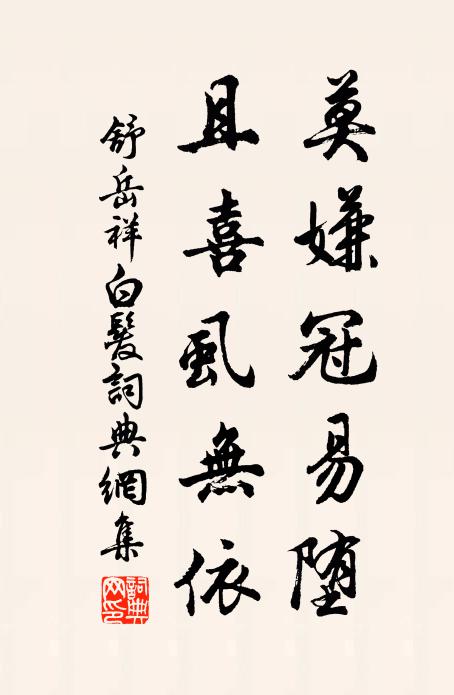 莫嫌冠易堕
且喜虱無依
舒岳祥白髮詞典網集
詞典網印